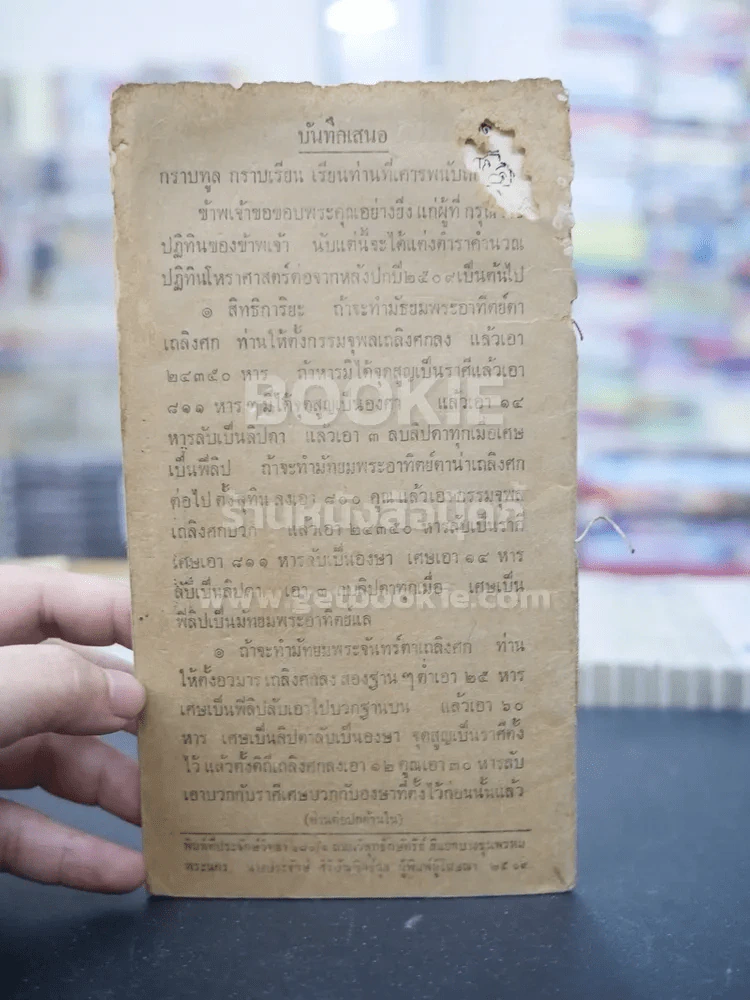 บันทึกเสนอ
กราบทูล กราบเรียน เรียนท่านที่เคารพนับถือ
ข้าพเจ้าขอขอบพระคุณอย่างยิ่ง แก่ผู้ที่ กรุณา
ปฏิทินของข้าพเจ้า นับแต่นี้จะได้แต่งตำราคำนวณ
ปฏิทินโหราศาสตร์ต่อจากหลังปกปี๒๕๐๙เป็นต้นไป
๑ สิทธิการิยะ ถ้าจะทำมัธยมพระอาทิตย์ตา
เถลิงศก ท่านให้ตั้งกรรมจุพลเถลิงศกลง แล้วเอา
๒๔๓๕๐ หาร ถ้าหารมิได้จุดสูญเป็นราศีแล้วเอา
๘๑๑ หาร ๆ มิได้จุดสูญเป็นองศา แล้วเอา ๑๔
หารลับเป็นลิปดา แล้วเอา ๓ ลบลิปดาทุกเมื่อเศษ
เป็นพิลิป ถ้าจะทำมัทยมพระอาทิตย์ตาน่าเถลิงศก
ต่อไป ตั้งสุทิน ลงเอา ๘๐๐ คูณ แล้วเอากรรมจุพล
เถลิงศกบวก แล้วเอา ๒๔๓๕๐ หารลัปเป็นราศี
เศษเอา ๘๑๑ หารลับเป็นองษา เศษเอา ๑๔ หาร
ลัปเป็นลิปดา เอา ๓ ลบลิปดาทุกเมื่อ เศษเป็น
พิลิปเป็นมัทยมพระอาทิตยแล
๑ ถ้าจะทำมัทยมพระจันทร์ตาเถลิงศก ท่าน
ให้ตั้งอวมาร เถลิงศกลง สองฐาน ๆ ต่ำเอา ๒๕ หาร
เศษเป็นพิลิปลัปเอาไปบวกฐานบน แล้วเอา ๖๐
หาร เศษเป็นลิปดาลับเป็นองษา จุดสูญเป็นราศีตั้ง
ไว้ แล้วตั้งดิถีเถลิงศกลงเอา ๑๒ คูณเอา ๓๐ หารลับ
เอาบวกกับราศีเศษบวกกับองษาที่ตั้งไว้ก่อนนั้นแล้ว
(อ่านต่อปกด้านใน)
พิมพ์ที่ประจักษ์วิทยา ถนนวิสุทธิกษัตริย์ สี่แยกบางขุนพรหม
พระนคร นายประจักษ์ ผู้พิมพ์ผู้โฆษณา ๒๕๐๙
BOOKIE
ร้านหนังสือบุ๊คกี้
www.getbookie.com